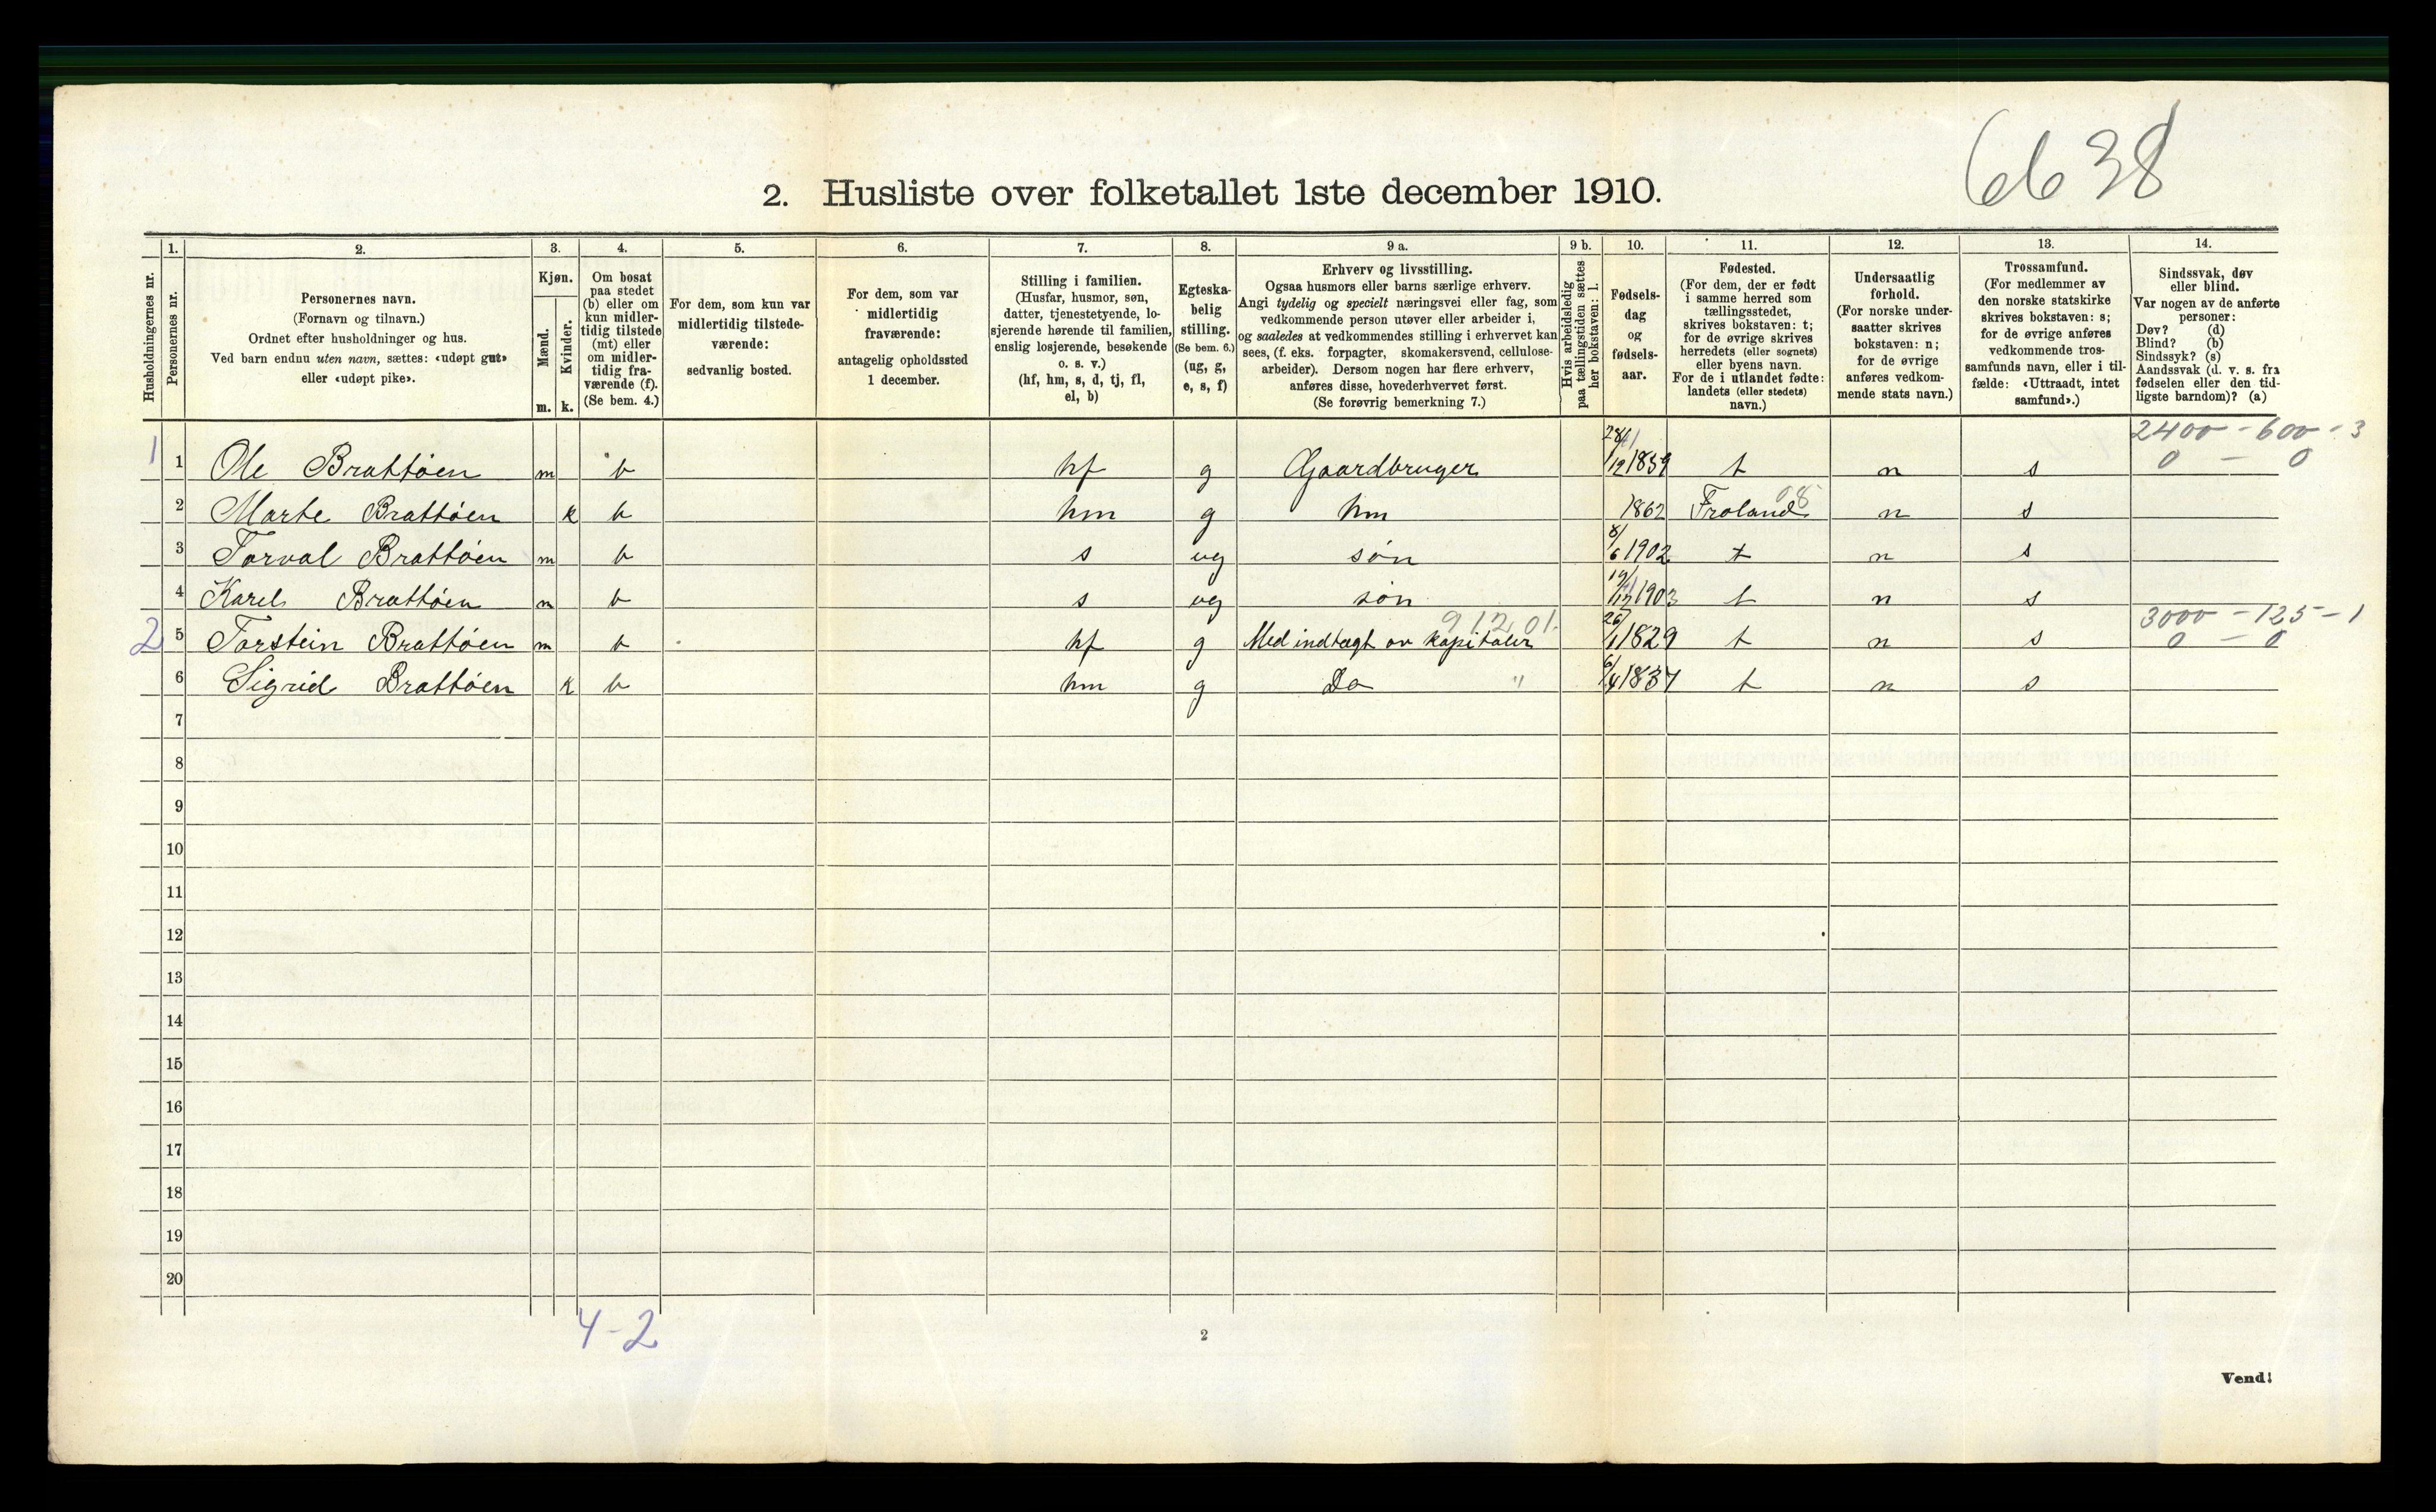 6638
2. Husliste over folketallet 1ste december 1910.
Husholdningernes nr.
1. 2. 3. 4. 5. 6. 7. 8. 9 a. 9 b. 10. 11. 12. 13. 14.
Personernes nr.
Personernes navn.
(Fornavn og tilnavn.)
Ordnet efter husholdninger og hus.
Ved barn endnu uten navn, sættes: «udøpt gut»
eller «udøpt pike».
Kjøn.
Mænd.
m.
Kvinder.
k.
Om bosat
paa stedet
(b) eller om
kun midler-
tidig tilstede
(mt) eller
om midler-
tidig fra-
værende (f).
(Se bem. 4.)
For dem, som kun var
midlertidig tilstede-
værende:
sedvanlig bosted.
For dem, som var
midlertidig
fraværende:
antagelig opholdssted
1 december.
Stilling i familien.
(Husfar, husmor, søn,
datter, tjenestetyende, lo-
sjerende hørende til familien,
enslig losjerende, besøkende
o. s. v.)
(hf, hm, s, d, tj, fl,
el, b)
Egteska-
belig
stilling.
(Se bem. 6.)
(ug, g,
e, s, f)
Erhverv og livsstilling.
Ogsaa husmors eller barns særlige erhverv.
Angi tydelig og specielt næringsvei eller fag, som
vedkommende person utøver eller arbeider i,
og saaledes at vedkommendes stilling i erhvervet kan
sees, (f. eks. forpagter, skomakersvend, cellulose-
arbeider). Dersom nogen har flere erhverv,
anføres disse, hovederhvervet først.
(Se forøvrig bemerkning 7.)
Hvis arbeidsledig
paa tællingstiden sættes
her bokstaven: l.
Fødsels-
dag
og
fødsels-
aar.
Fødested.
(For dem, der er født
i samme herred som
tællingsstedet,
skrives bokstaven: t;
for de øvrige skrives
herredets (eller sognets)
eller byens navn.
For de i utlandet fødte:
landets (eller stedets)
navn.)
Undersaatlig
forhold.
(For norske under-
saatter skrives
bokstaven: n;
for de øvrige
anføres vedkom-
mende stats navn.)
Trossamfund.
(For medlemmer av
den norske statskirke
skrives bokstaven: s;
for de øvrige anføres
vedkommende tros-
samfunds navn, eller i til-
fælde: «Uttraadt, intet
samfund».)
Sindssvak, døv
eller blind.
Var nogen av de anførte
personer:
Døv? (d)
Blind? (b)
Sindssyk? (s)
Aandssvak (d. v. s. fra
fødselen eller den tid-
ligste barndom)? (a)
2400 - 600 - 3
1 1 Ole Brattøen m b hf g Gaardbruger 28/12 1859 t n s 0 - 0
2 Marte Brattøen k b hm g hm 1862 Froland 08 n s
3 Torval Brattøen m b s ug søn 8/6 1902 t n s
4 Karel Brattøen m b s ug søn 19/12 1903 t n s
91201. 3000 - 125 - 1
2 5 Torstein Brattøen m b hf g Med indtægt av kapitaler 26/1 1829 t n s 0 - 0
6 Sigrid Brattøen k b hm g Do " 6/4 1837 t n s
7
8
9
10
11
12
13
14
15
16
17
18
19
20
4-2
2
Vend!